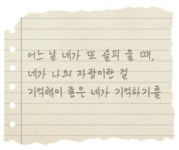 어느 날 네가 또 슬피 울 때,
네가 나의 자랑이란 걸
기억력이 좋은 네가 기억하기를